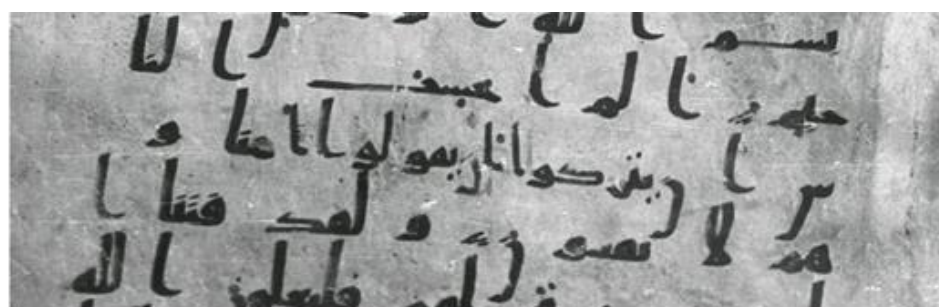 بسم الله الرحمن الر
حيم الم احسب النا
س ان يتركوا ان يقولوا امنا و
هم لا يفتنون و لقد فتنا ا
لذين من قبلهم فليعلمن الله